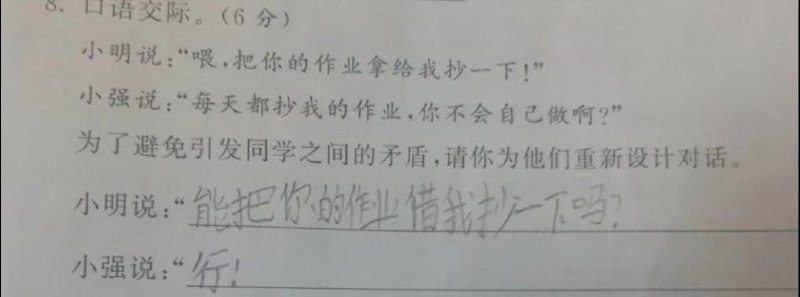 8. 口语交际。(6 分)
小明说:“喂,把你的作业拿给我抄一下!”
小强说:“每天都抄我的作业,你不会自己做啊?”
为了避免引发同学之间的矛盾,请你为他们重新设计对话。
小明说:“能把你的作业借我抄一下吗?
小强说:“行!